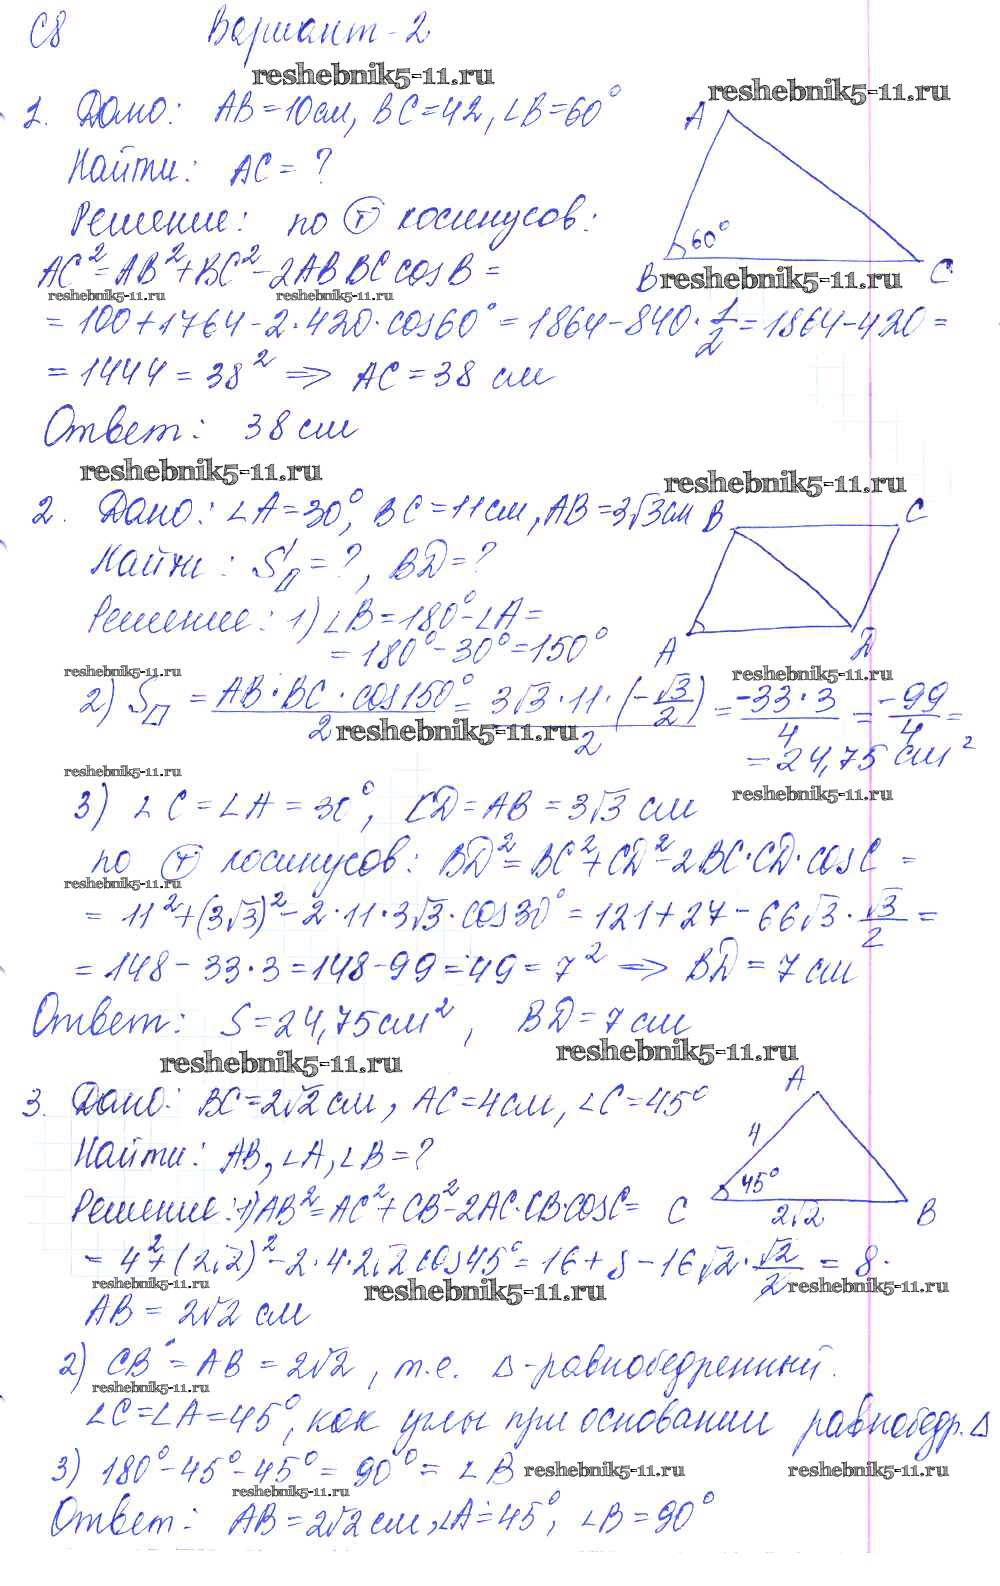 С8 Вариант-2
reshebnik5-11.ru
reshebnik5-11.ru
1. Дано: AB=10см, BC=42, ∠B=60°
A
Найти: AC=?
Решение: по Ⓣ косинусов:
60°
B reshebnik5-11.ru C
AC²=AB²+BC²-2AB BC cosB=
reshebnik5-11.ru reshebnik5-11.ru
=100+1764-2·420·cos60°=1864-840·1/2=1864-420=
=1444=38² ⇒ AC=38 см
Ответ: 38 см
reshebnik5-11.ru reshebnik5-11.ru
2. Дано: ∠A=30°, BC=11см, AB=3√3см
B C
Найти: S▱=?, BD=?
Решение: 1) ∠B=180°-∠A=
=180°-30°=150°
A D
reshebnik5-11.ru reshebnik5-11.ru
2) S▱ = AB·BC·cos150°/2 = 3√3·11·(-√3/2)/2 = -33·3/4 = -99/4 =
reshebnik5-11.ru
=24,75 см²
reshebnik5-11.ru reshebnik5-11.ru
3) ∠C=∠A=30°, CD=AB=3√3 см
по Ⓣ косинусов: BD²=BC²+CD²-2BC·CD·cosC=
reshebnik5-11.ru
=11²+(3√3)²-2·11·3√3·cos30°=121+27-66√3·√3/2=
=148-33·3=148-99=49=7² ⇒ BD=7 см
Ответ: S=24,75см², BD=7 см
reshebnik5-11.ru reshebnik5-11.ru
3. Дано: BC=2√2 см, AC=4см, ∠C=45°
A
4
Найти: AB, ∠A, ∠B=?
45°
Решение: 1) AB²=AC²+CB²-2AC·CB·cosC=
C 2√2 B
=4²+(2√2)²-2·4·2√2 cos45°=16+8-16√2·√2/2=8.
reshebnik5-11.ru reshebnik5-11.ru reshebnik5-11.ru
AB=2√2 см
2) CB=AB=2√2, т.е. Δ-равнобедренный.
reshebnik5-11.ru
∠C=∠A=45°, как углы при основании равнобедр. Δ
3) 180°-45°-45°=90°=∠B
reshebnik5-11.ru reshebnik5-11.ru
reshebnik5-11.ru
Ответ: AB=2√2 см, ∠A=45°, ∠B=90°